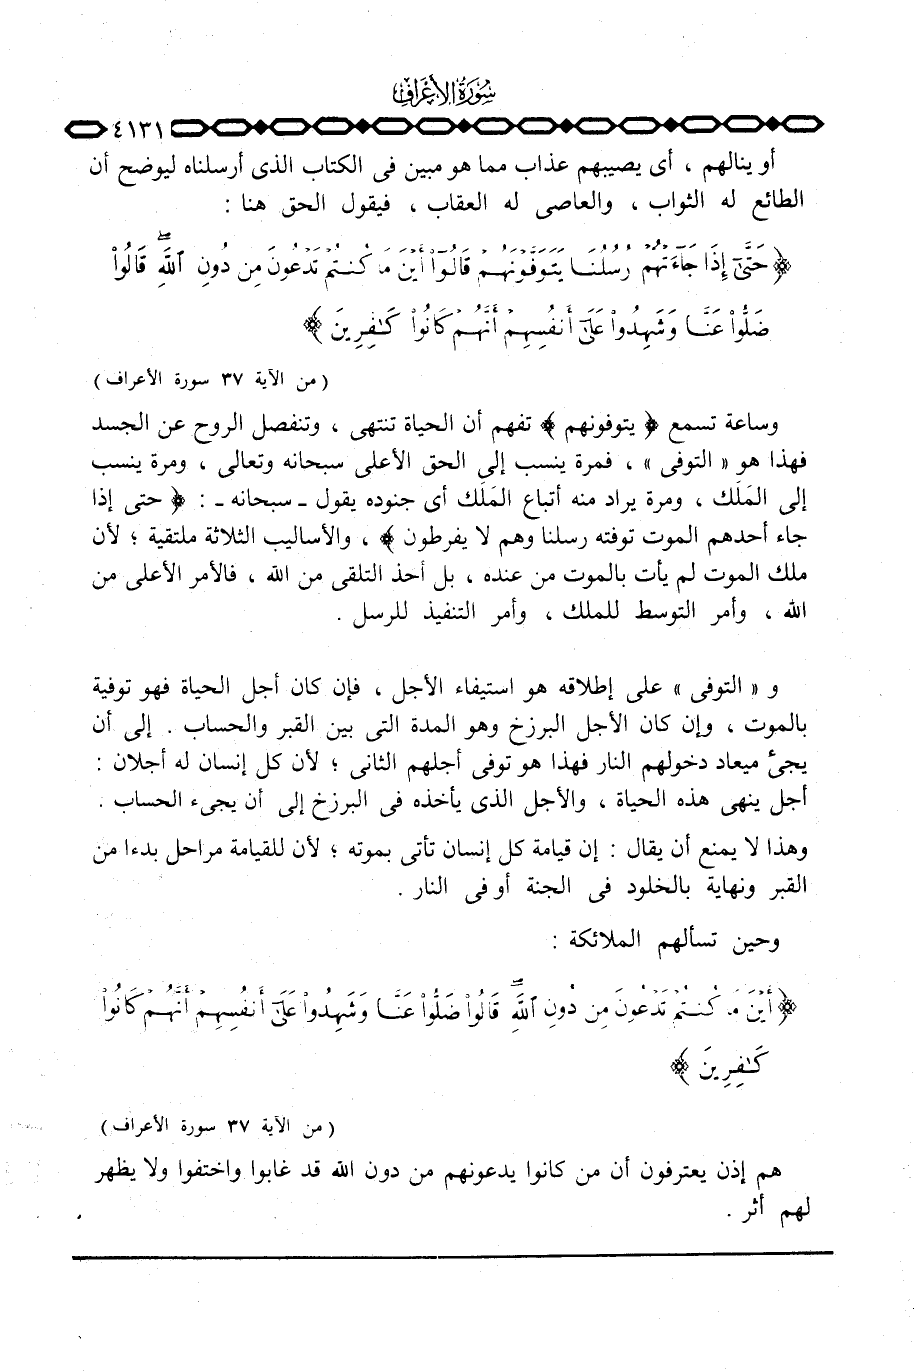 سورة الأعراف
٤١٣١
أو ينالهم ، أى يصيبهم عذاب مما هو مبين فى الكتاب الذى أرسلناه ليوضح أن
الطائع له الثواب ، والعاصى له العقاب ، فيقول الحق هنا :
﴿ حَتَّىٰٓ إِذَا جَآءَتْهُمْ رُسُلُنَا يَتَوَفَّوْنَهُمْ قَالُوٓا۟ أَيْنَ مَا كُنتُمْ تَدْعُونَ مِن دُونِ ٱللَّهِ ۖ قَالُوا۟
ضَلُّوا۟ عَنَّا وَشَهِدُوا۟ عَلَىٰٓ أَنفُسِهِمْ أَنَّهُمْ كَانُوا۟ كَـٰفِرِينَ ﴾
( من الآية ٣٧ سورة الأعراف )
وساعة تسمع ﴿ يتوفونهم ﴾ تفهم أن الحياة تنتهى ، وتنفصل الروح عن الجسد
فهذا هو « التوفى » ، فمرة ينسب إلى الحق الأعلى سبحانه وتعالى ، ومرة ينسب
إلى المَلَك ، ومرة يراد منه أتباع المَلَك أى جنوده يقول ـ سبحانه ـ : ﴿ حتى إذا
جاء أحدهم الموت توفته رسلنا وهم لا يفرطون ﴾ ، والأساليب الثلاثة ملتقية ؛ لأن
ملك الموت لم يأت بالموت من عنده ، بل أخذ التلقى من الله ، فالأمر الأعلى من
الله ، وأمر التوسط للملك ، وأمر التنفيذ للرسل .
و « التوفى » على إطلاقه هو استيفاء الأجل ، فإن كان أجل الحياة فهو توفية
بالموت ، وإن كان الأجل البرزخ وهو المدة التى بين القبر والحساب . إلى أن
يجئ ميعاد دخولهم النار فهذا هو توفى أجلهم الثانى ؛ لأن كل إنسان له أجلان :
أجل ينهى هذه الحياة ، والأجل الذى يأخذه فى البرزخ إلى أن يجىء الحساب .
وهذا لا يمنع أن يقال : إن قيامة كل إنسان تأتى بموته ؛ لأن للقيامة مراحل بدءا من
القبر ونهاية بالخلود فى الجنة أو فى النار .
وحين تسألهم الملائكة :
﴿ أَيْنَ مَا كُنتُمْ تَدْعُونَ مِن دُونِ ٱللَّهِ ۖ قَالُوا۟ ضَلُّوا۟ عَنَّا وَشَهِدُوا۟ عَلَىٰٓ أَنفُسِهِمْ أَنَّهُمْ كَانُوا۟
كَـٰفِرِينَ ﴾
( من الآية ٣٧ سورة الأعراف )
هم إذن يعترفون أن من كانوا يدعونهم من دون الله قد غابوا واختفوا ولا يظهر
لهم أثر .